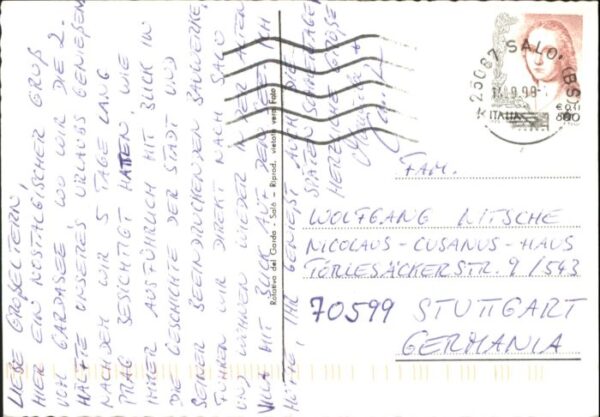 LIEBE GROßELTERN,
HIER EIN NOSTALGISCHER GRUß
VOM GARDASEE, WO WIR DIE 2.
HÄLFTE UNSERES URLAUBS GENIEßEN
NACHDEM WIR 5 TAGE LANG
PRAG BESICHTIGT HATTEN, WIE
IMMER AUSFÜHRLICH MIT BLICK IN
DIE GESCHICHTE DER STADT UND
SEINER BEEINDRUCKENDEN BAUWERKE,
FUHREN WIR DIREKT NACH SALÒ
UND WOHNEN WIEDER IN DER ALTEN
VILLA MIT BLICK AUF DEN SEE. ICH
HOFFE, IHR GENIEßT AUCH DIE
SPÄTEN SOMMERTAGE.
HERZLICHE GRÜßE
Rotalvo del Garda - Salò - Riprod. vietata vera Foto
25087 SALO' (BS)
9.99
ITALIA
€ 0,41
800
FAM.
WOLFGANG NITSCHE
NICOLAUS-CUSANUS-HAUS
TÖRLESÄCKERSTR. 9/543
70599 STUTTGART
GERMANIA